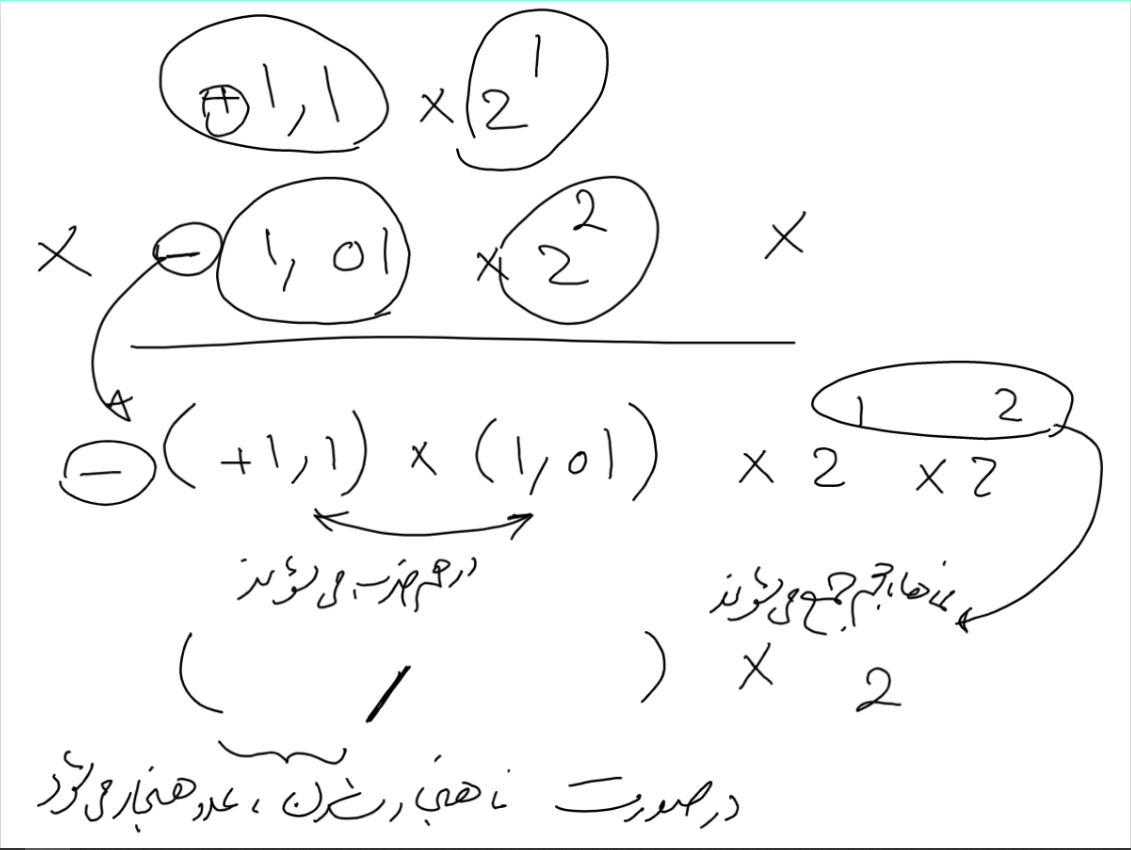 +1,1 × 2^1
× − 1,01 × 2^2 ×
− (+1,1) × (1,01) × 2^1 × 2^2
درهم ضرب می شوند
نماها باهم جمع می شوند
( / ) × 2
در صورت ناهنجار شدن ، عدد هنجار می شود